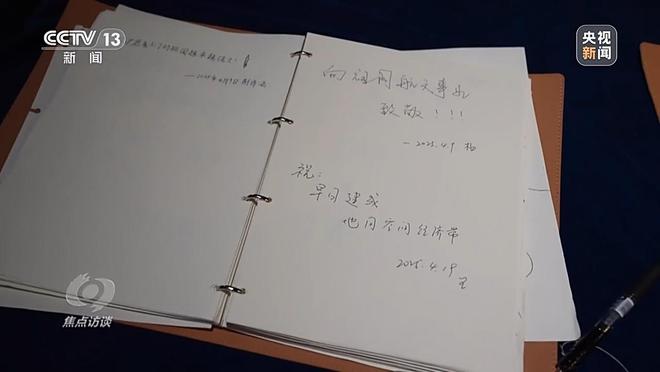 CCTV 13
新闻
央视
新闻
祖国越来越伟大!
——2025年4月9日
向祖国航天事业
致敬!!!
—2025.4.9 杨
祝:
早日建成
地月空间经济带
2025.4.19
王
焦点访谈